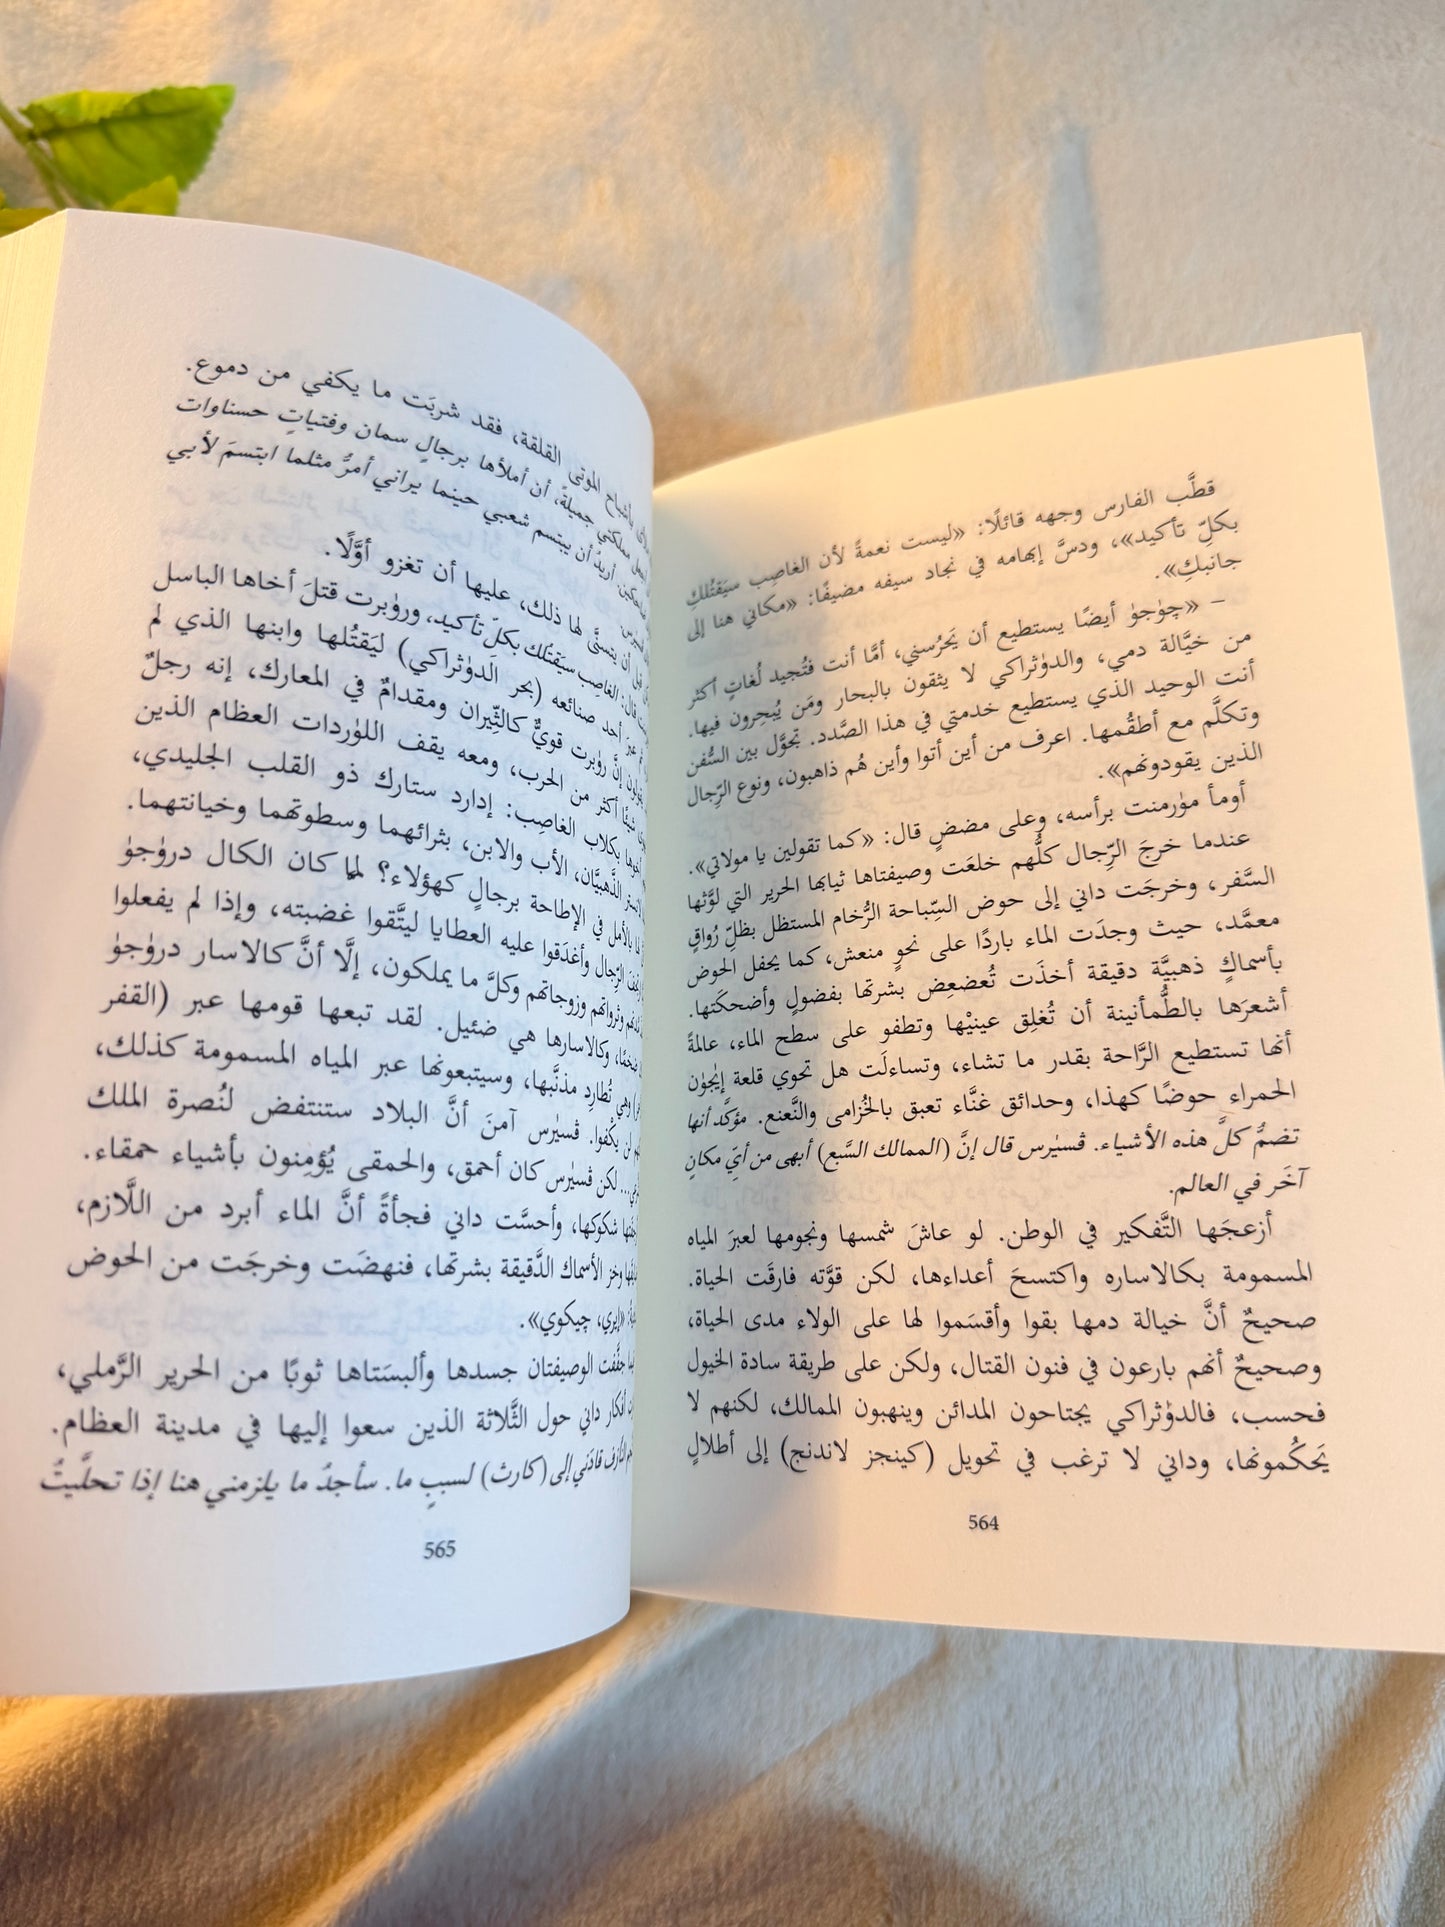 قطَّب الفارس وجهه قائلًا: «ليست نعمةً لأن الغاصِب سيَقتُلكِ
بكلِّ تأكيد»، ودسَّ إبهامه في نجاد سيفه مضيفًا: «مكاني هنا إلى
جانبكِ».
– «چوٰجوٰ أيضًا يستطيع أن يَحرُسني، أمَّا أنت فتُجيد لُغاتٍ أكثر
من خيَّالة دمي، والدوٰثراكي لا يثقون بالبحار ومَن يُبحِرون فيها.
أنت الوحيد الذي يستطيع خدمتي في هذا الصَّدد. تجوَّل بين السُّفن
وتكلَّم مع أطقُمها. اعرف من أين أتوا وأين هُم ذاهبون، ونوع الرِّجال
الذين يقودونهم».
أومأ موٰرمنت برأسه، وعلى مضضٍ قال: «كما تقولين يا مولاتي».
عندما خرجَ الرِّجال كلُّهم خلعَت وصيفتاها ثيابها الحرير التي لوَّثها
السَّفر، وخرجَت داني إلى حوض السِّباحة الرُّخام المستظل بظلِّ رُواقٍ
معمَّد، حيث وجدَت الماء باردًا على نحوٍ منعش، كما يحفل الحوض
بأسماكٍ ذهبيَّة دقيقة أخذَت تُعضعِض بشرتها بفضولٍ وأضحكَتها.
أشعرَها بالطُّمأنينة أن تُغلِق عينيْها وتطفو على سطح الماء، عالمةً
أنها تستطيع الرَّاحة بقدر ما تشاء، وتساءلَت هل تحوي قلعة إيٰجوٰن
الحمراء حوضًا كهذا، وحدائق غنَّاء تعبق بالخُزامى والنَّعنع. مؤكَّد أنها
تضمُّ كلَّ هذه الأشياء. ڤسيٰرس قال إنَّ (الممالك السَّبع) أبهى من أيِّ مكانٍ
آخَر في العالم.
أزعجَها التَّفكير في الوطن. لو عاشَ شمسها ونجومها لعبرَ المياه
المسمومة بكالاساره واكتسحَ أعداءها، لكن قوَّته فارقَت الحياة.
صحيحٌ أنَّ خيالة دمها بقوا وأقسَموا لها على الولاء مدى الحياة،
وصحيحٌ أنهم بارعون في فنون القتال، ولكن على طريقة سادة الخيول
فحسب، فالدوٰثراكي يجتاحون المدائن وينهبون الممالك، لكنهم لا
يَحكُمونها، وداني لا ترغب في تحويل (كينجز لاندنج) إلى أطلالٍ
564
بأشباح الموتى القلقة، فقد شربَت ما يكفي من دموع.
مملكتي جميلةً، أن أملأها برجالٍ سمان وفتياتٍ حسناوات
أريدُ أن يبتسم شعبي حينما يراني أمرُّ مثلما ابتسمَ لأبي
قبل أن يتسنَّى لها ذلك، عليها أن تغزو أوَّلًا.
قال: الغاصب سيَقتُلك بكلِّ تأكيد، وروٰبرت قتلَ أخاها الباسل
عبرَ أحد صنائعه (بحر الدوٰثراكي) ليَقتُلها وابنها الذي لم
إنَّ روٰبرت قويٌّ كالثِّيران ومقدامٌ في المعارك، إنه رجلٌ
شيئًا أكثر من الحرب، ومعه يقف اللوٰردات العظام الذين
بكلاب الغاصِب: إدارد ستارك ذو القلب الجليدي،
الذَّهبيَّان، الأب والابن، بثرائهما وسطوتهما وخيانتهما.
بالأمل في الإطاحة برجالٍ كهؤلاء؟ لمَّا كان الكال دروٰجوٰ
الرِّجال وأغدَقوا عليه العطايا ليتَّقوا غضبته، وإذا لم يفعلوا
وثرواتهم وزوجاتهم وكلَّ ما يملكون، إلَّا أنَّ كالاسار دروٰجوٰ
ضخمًا، وكالاسارها هي ضئيل. لقد تبعها قومها عبر (القفر
وهي تُطارِد مذنَّبها، وسيتبعونها عبر المياه المسمومة كذلك،
لن يكْفوا. ڤسيٰرس آمنَ أنَّ البلاد ستنتفض لنُصرة الملك
... لكن ڤسيٰرس كان أحمق، والحمقى يُؤمِنون بأشياء حمقاء.
شكوكها، وأحسَّت داني فجأةً أنَّ الماء أبرد من اللَّازم،
وخز الأسماك الدَّقيقة بشرتها، فنهضَت وخرجَت من الحوض
«إيري، چيكوي».
جفَّفت الوصيفتان جسدها وألبسَتاها ثوبًا من الحرير الرَّملي،
أفكار داني حول الثَّلاثة الذين سعوا إليها في مدينة العظام.
النَّازف قادَني إلى (كارث) لسببٍ ما. سأجدُ ما يلزمني هنا إذا تحلَّيتُ
565